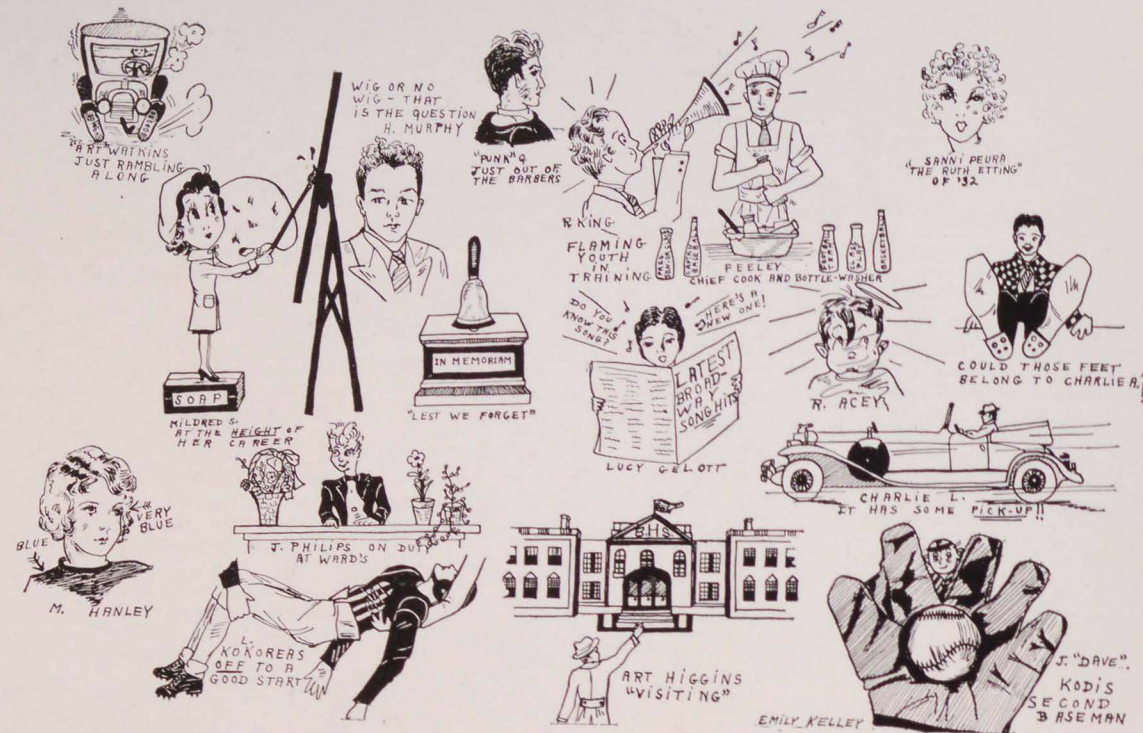 "ART WATKINS
JUST RAMBLING
ALONG
WIG OR NO
WIG - THAT
IS THE QUESTION
H. MURPHY
"PUNK" G
JUST OUT OF
THE BARBERS
R. KING
FLAMING
YOUTH
IN
TRAINING
FEELEY
CHIEF COOK AND BOTTLE-WASHER
"SANNI PEURA
"THE RUTH ETTING"
OF '32
SOAP
MILDRED S.
AT THE HEIGHT OF
HER CAREER
IN MEMORIAM
"LEST WE FORGET"
DO YOU
KNOW THIS
SONG?
HERE'S A
NEW ONE!
LATEST
BROAD-
WAY
SONG HITS
LUCY GELOTT
R. ACEY
COULD THOSE FEET
BELONG TO CHARLIE A.?
CHARLIE L.
IT HAS SOME PICK-UP!!
VERY
BLUE
BLUE
M. HANLEY
J. PHILIPS ON DUTY
AT WARD'S
L.
KOKOREAS
OFF TO A
GOOD START
B.H.S.
ART HIGGINS
"VISITING"
J. "DAVE"
KODIS
SECOND
BASEMAN
EMILY KELLEY